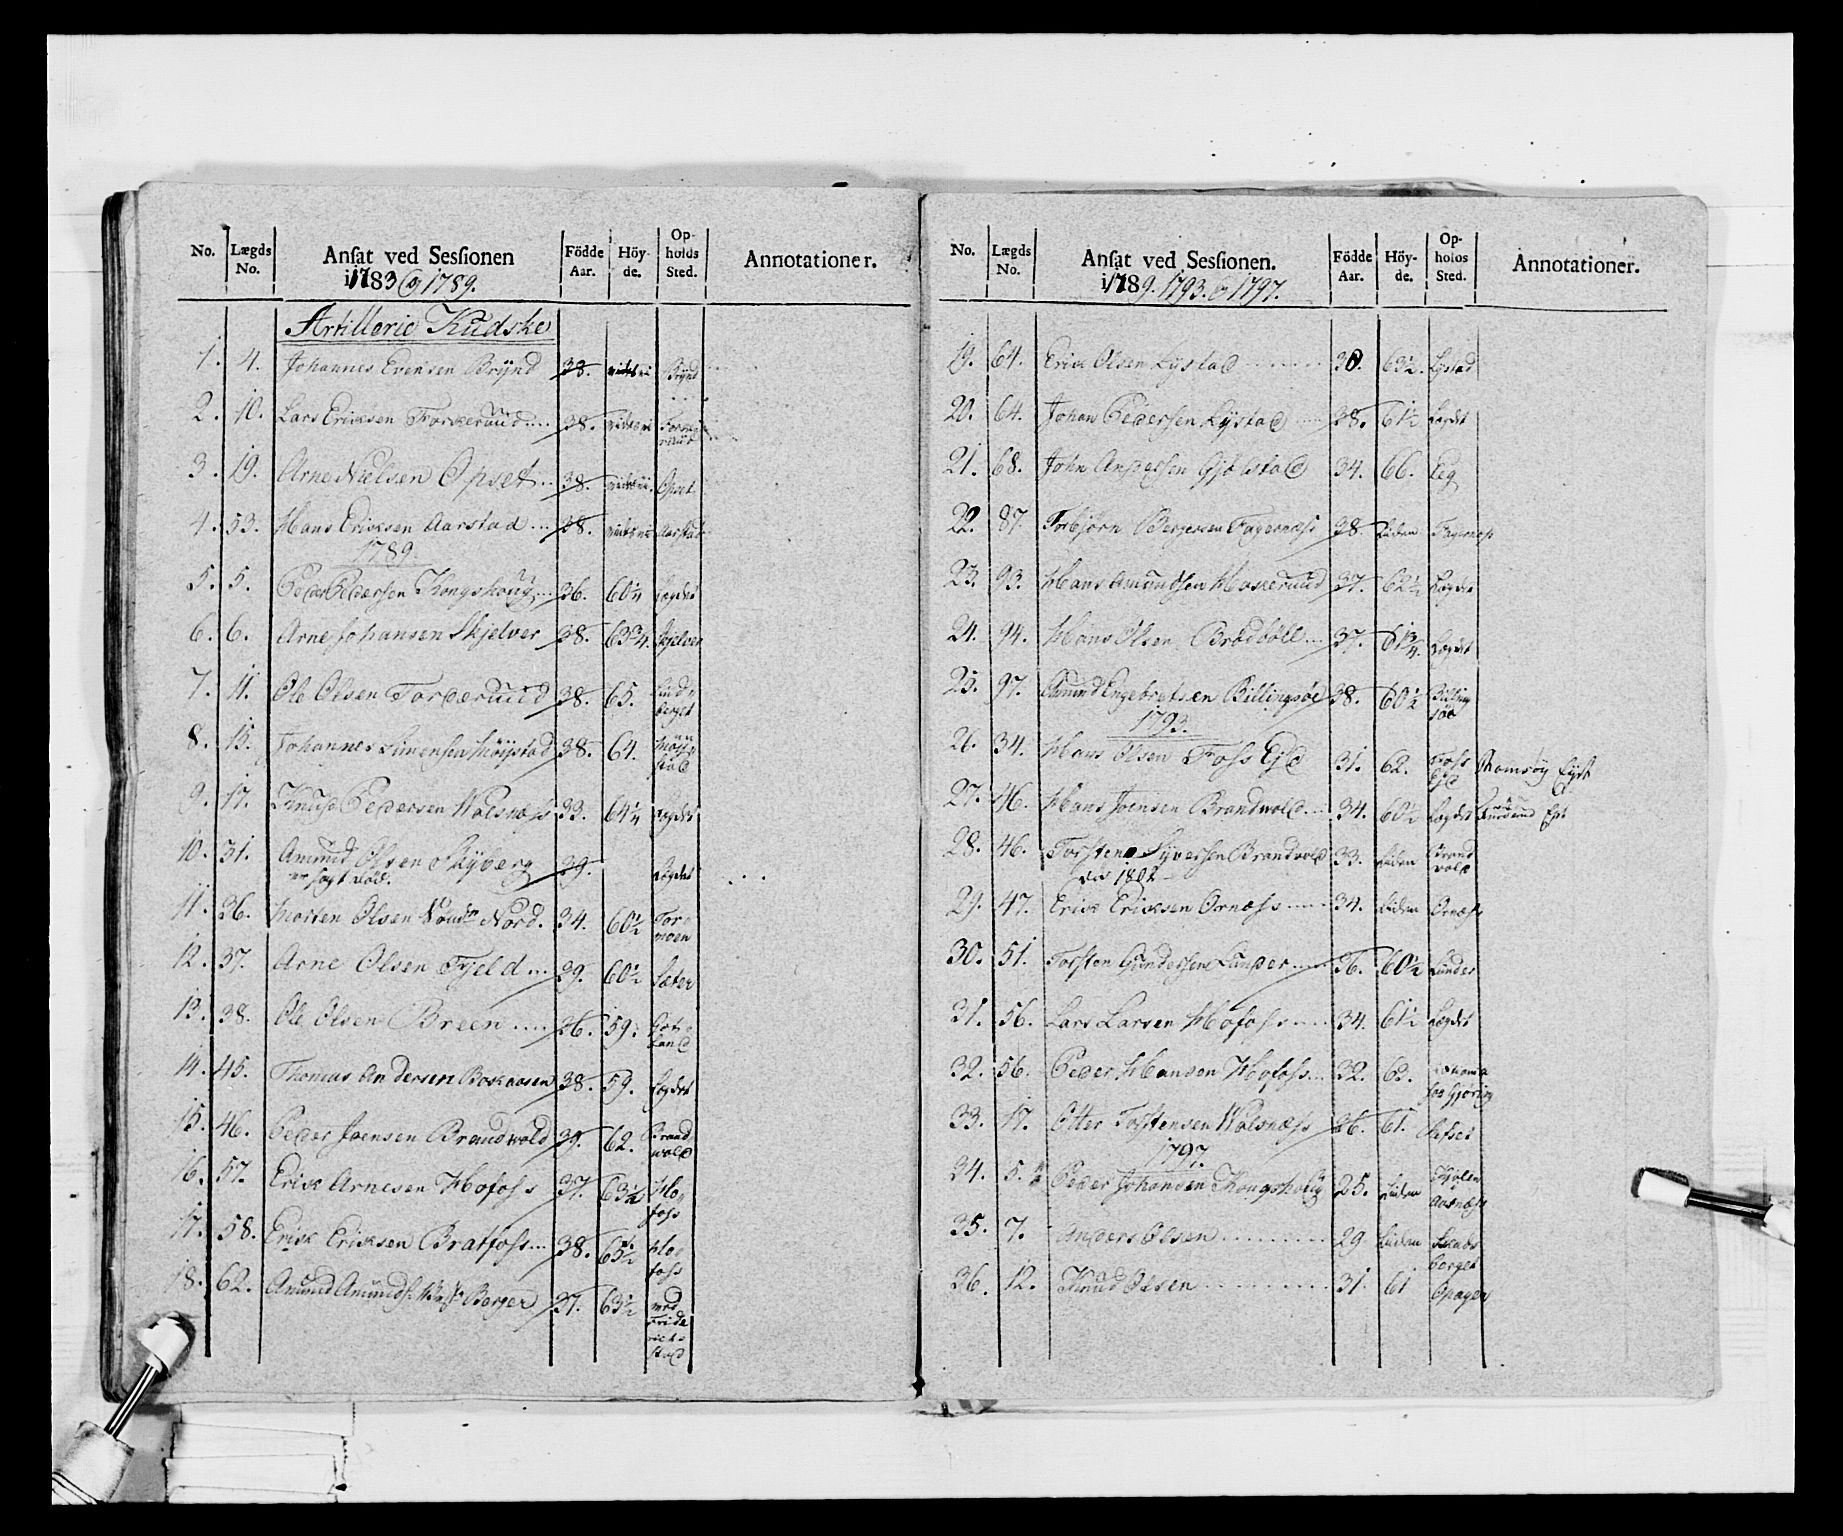 No. Lægds No. Ansat ved Sessionen i 1783 og 1789. Födde Aar. Höyde. Opholds Sted. Annotationer.
Artillerie Kudske
1. 4. Johannes Evensen Brynd 38. Brynd
2. 10. Lars Eriksen Forkerud .... 38. Forkerud
3. 19. Arne Nielsen Opset .. 38. Opset
4. 53. Hans Eriksen Aarstad ... 38. Aarstad
1789.
5. 5. Peder Pedersen Kongshoug ... 36. 60 1/4 Lægdet
6. 6. Arne Johansen Skjelver 38. 63 3/4. Skjelver
7. 11. Ole Olsen Torderuud 38. 65. Lundberget
8. 15. Johannes Simensen Møystad 38. 64. Møystad
9. 17. Knud Pedersen Walsnæss 33. 64 1/4 Lægdet
10. 31. Amund Olsen Skyberg 39. Lægdet
er sagt död.
11. 36. Morten Olsen Nord. 34. 60 1/2 Tormoen
12. 37. Arne Olsen Fjeld ... 29. 60 1/2 Sæter
13. 38. Ole Olsen Breen ..... 26. 59. Gotland
14. 45. Thomas Andersen Boskaasen 38. 59. Lægdet
15. 46. Peder Joensen Brandvold 39. 62. Brandvold
16. 57. Erik Arnesen Hofoss 37. 63 1/2 Hofoss
17. 58. Erik Eriksen Bratfoss ... 38. 65 1/2 Hofoss
18. 62. Amund Amunds. Berger 37. 63 1/2 ved Friderichstad
No. Lægds No. Ansat ved Sessionen. i 1789. 1793. og 1797. Födde Aar. Höyde. Opholds Sted. Annotationer.
19. 64. Erik Olsen Lystad ........ 30. 63 1/2. Lystad
20. 64. Johan Pedersen Lystad ..... 38. 61 1/2 Lægdet
21. 68. John Andersen Gjølstad 34. 66. Eeg
22. 87. Torbjörn Bergersen Fagernæss 38. Liden Fagernæss
23. 93. Hans Amundsen Maskeruud 37. 62 1/2 Lægdet
24. 94. Hans Olsen Brødbøll ... 37. 61 3/4. Lægdet
25. 97. Amund Engebretsen Billingsøe 38. 60 1/2 Billingsøe
1793.
26. 34. Hans Olsen Foss Ejd 31. 62. Foss Ejd
27. 46. Hans Joensen Brandvold .... 34. 60 1/2 Lægdet
28. 46. Torsten Syversen Brandvold 33. Liden Brandvold
1802
29. 47. Erik Eriksen Ornæss ..... 34. Liden Ornæss
30. 51. Torsten Gundersen Lunder .... 36. 60 1/2 Lunder
31. 56. Lars Larsen Hofoss ..... 34. 61 1/2 Lægdet
32. 56. Peder Hansen Hofoss ... 32. 63.
33. 17. Otter Torstensen Walsnæss 26. 61. Refset
1797.
34. 5. Peder Johansen Kongshoug 25. Liden
35. 7. Anders Olsen .......... 29 Liden
36. 12. Knud Olsen ............ 31. 61 Opager